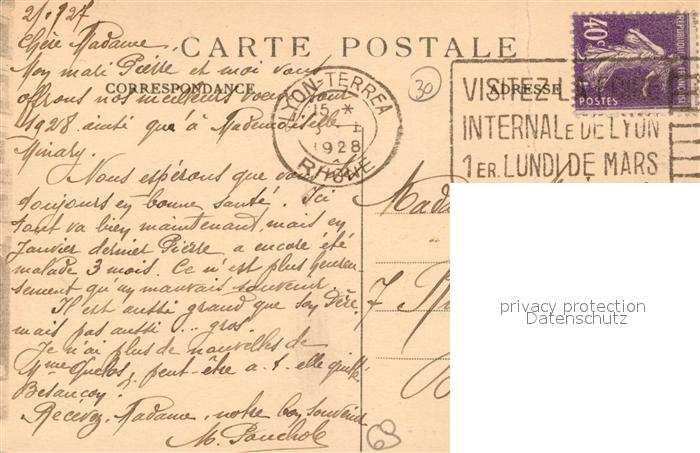 2/1.927
Chère Madame,
Mon mari Pierre et moi vous
offrons nos meilleurs voeux pour
1928 ainsi que à Mademoiselle
Minary.
Nous espérons que vous
toujours en bonne santé. Ici
tout va bien maintenant, mais en
Janvier dernier Pierre a encore été
malade 3 mois. Ce n'est plus heureu-
sement qu'un mauvais souvenir
Il est aussi grand que son Père.
mais pas aussi ... gros.
Je n'ai plus de nouvelles de
Mme peut-être a-t-elle quitté
Besançon?
Recevez, Madame, notre bon souvenir
M.
CARTE POSTALE
CORRESPONDANCE
ADRESSE
30
LYON-TERREAUX
15 *
1928
RHONE
VISITEZ LA FOIRE
INTERNALE DE LYON
1ER. LUNDI DE MARS
40c
REPUBLIQUE FRANCAISE
POSTES
Mada
7
69
privacy protection
Datenschutz